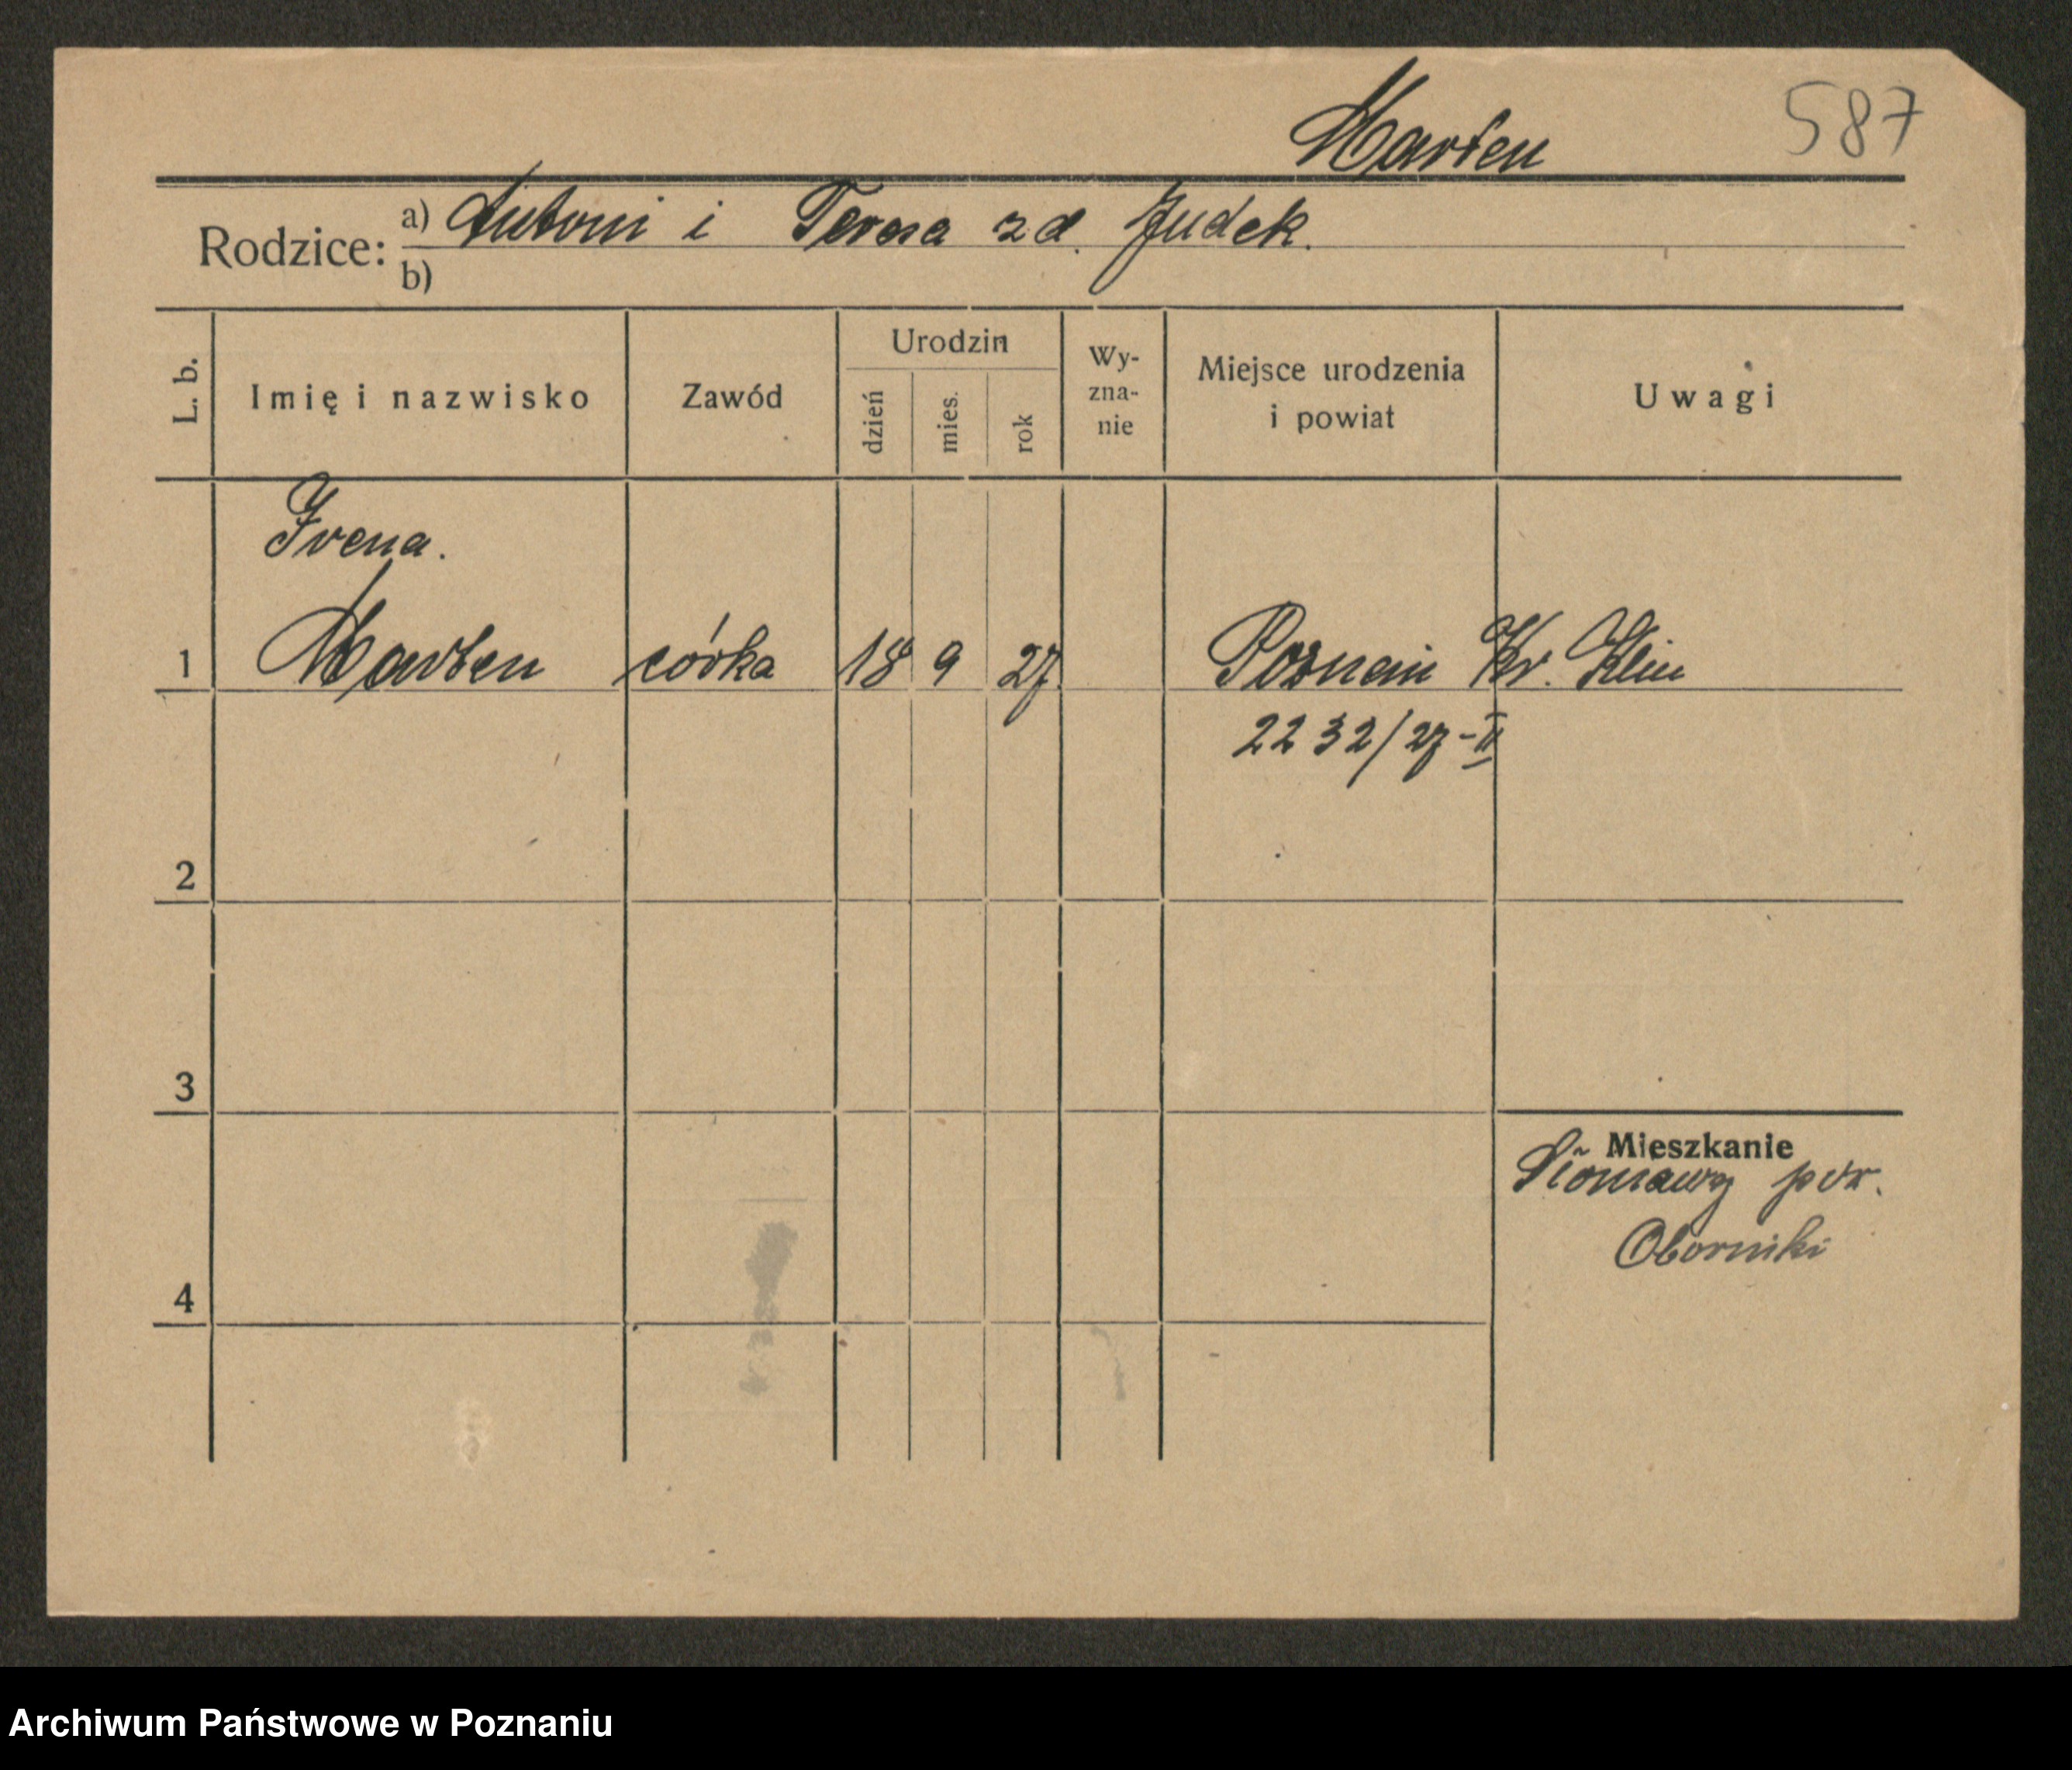 587
Marten
Rodzice: a) Antoni i Teresa zd. Judek.
b)
L. b.
Imię i nazwisko
Zawód
Urodzin
dzień
mies.
rok
Wy-
zna-
nie
Miejsce urodzenia
i powiat
Uwagi
Irena.
1 Marten córka 18 9 27 Poznań Kr. Klin
2232/27-II
2
3
Mieszkanie
pow.
Oborniki
4
Archiwum Państwowe w Poznaniu